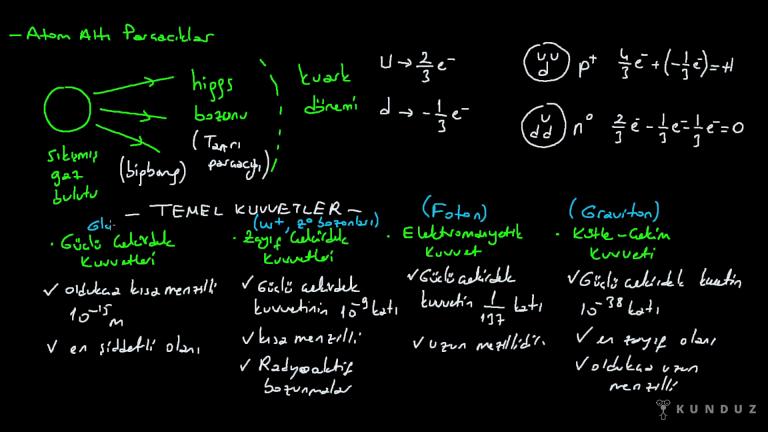 - Atom Altı Parçacıklar
higgs
bozonu
(Tanrı
parçacığı)
kuark
dönemi
sıkışmış
gaz
bulutu
(bigbang)
U → 2/3 e⁻
d → - 1/3 e⁻
U U
d
p⁺ 4/3 e⁻ + (-1/3 e⁻) = +1
U
d d
n⁰ 2/3 e⁻ - 1/3 e⁻ - 1/3 e⁻ = 0
- TEMEL KUVVETLER -
Glu
· Güçlü Çekirdek
Kuvvetleri
✓ oldukça kısa menzilli
10⁻¹⁵ m
✓ en şiddetli olanı
(W⁺, Z⁰ bozonları)
· Zayıf Çekirdek
Kuvvetleri
✓ Güçlü çekirdek
kuvvetinin 10⁻⁹ katı
✓ kısa menzilli
✓ Radyoaktif
bozunmalar
(Foton)
· Elektromanyetik
Kuvvet
✓ Güçlü çekirdek
kuvvetin 1/137 katı
✓ uzun mezillidir.
(Graviton)
· Kütle-Çekim
Kuvveti
✓ Güçlü çekirdek kuvvetin
10⁻³⁸ katı
✓ en zayıf olanı
✓ oldukça uzun
menzilli
KUNDUZ